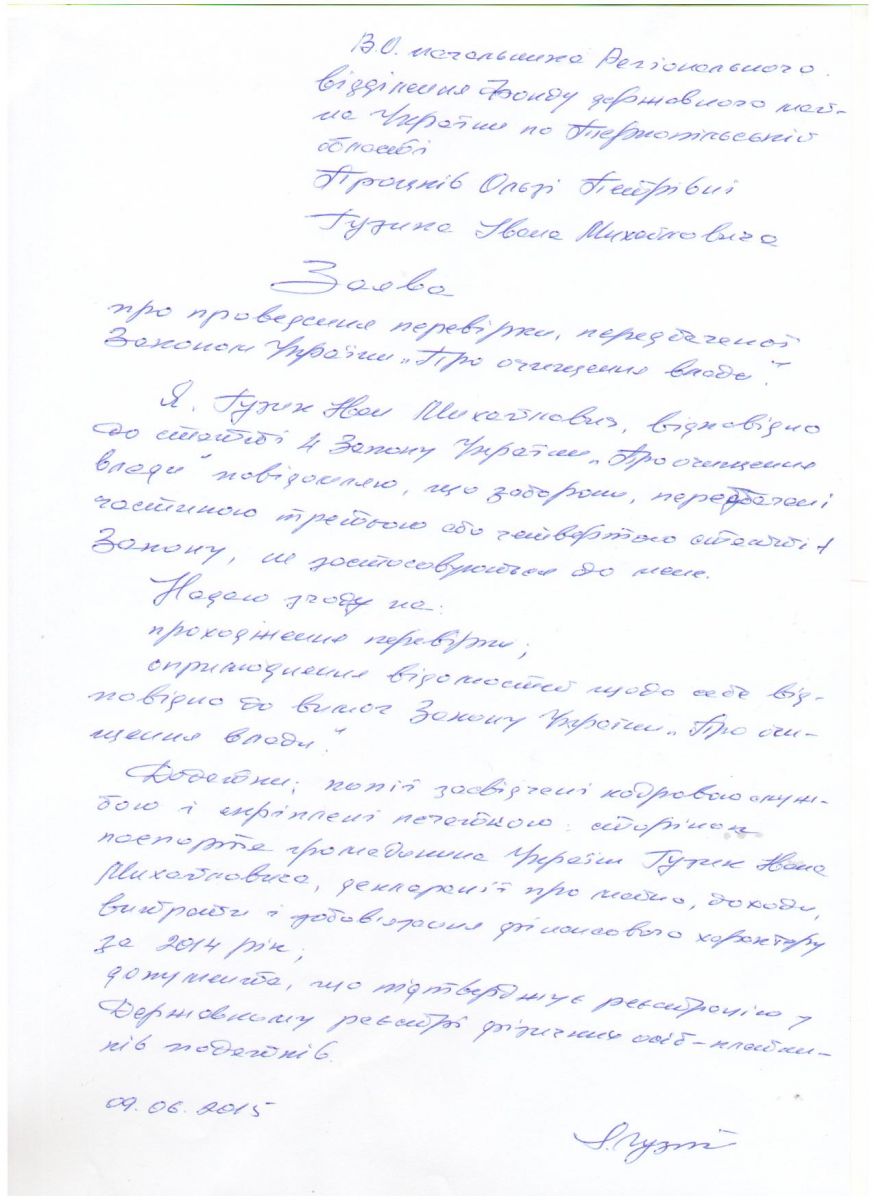 В.О. начальника Регіонального
відділення Фонду державного май-
на України по Тернопільській
області
Процків Ользі Петрівні
Гузика Івана Михайловича
Заява
про проведення перевірки, передбаченої
Законом України „Про очищення влади".
Я, Гузик Іван Михайлович, відповідно
до статті 4 Закону України „Про очищення
влади" повідомляю, що заборони, передбачені
частиною третьою або четвертою статті 1
Закону, не застосовуються до мене.
Надаю згоду на:
проходження перевірки;
оприлюднення відомостей щодо себе від-
повідно до вимог Закону України „Про очи-
щення влади".
Додатки: копії засвідчені кадровою служ-
бою і скріплені печаткою: сторінок
паспорта громадянина України Гузик Івана
Михайловича, декларації про майно, доходи,
витрати і зобов'язання фінансового характеру
за 2014 рік;
документа, що підтверджує реєстрацію у
Державному реєстрі фізичних осіб-платни-
ків податків.
09.06.2015
І.Гузик